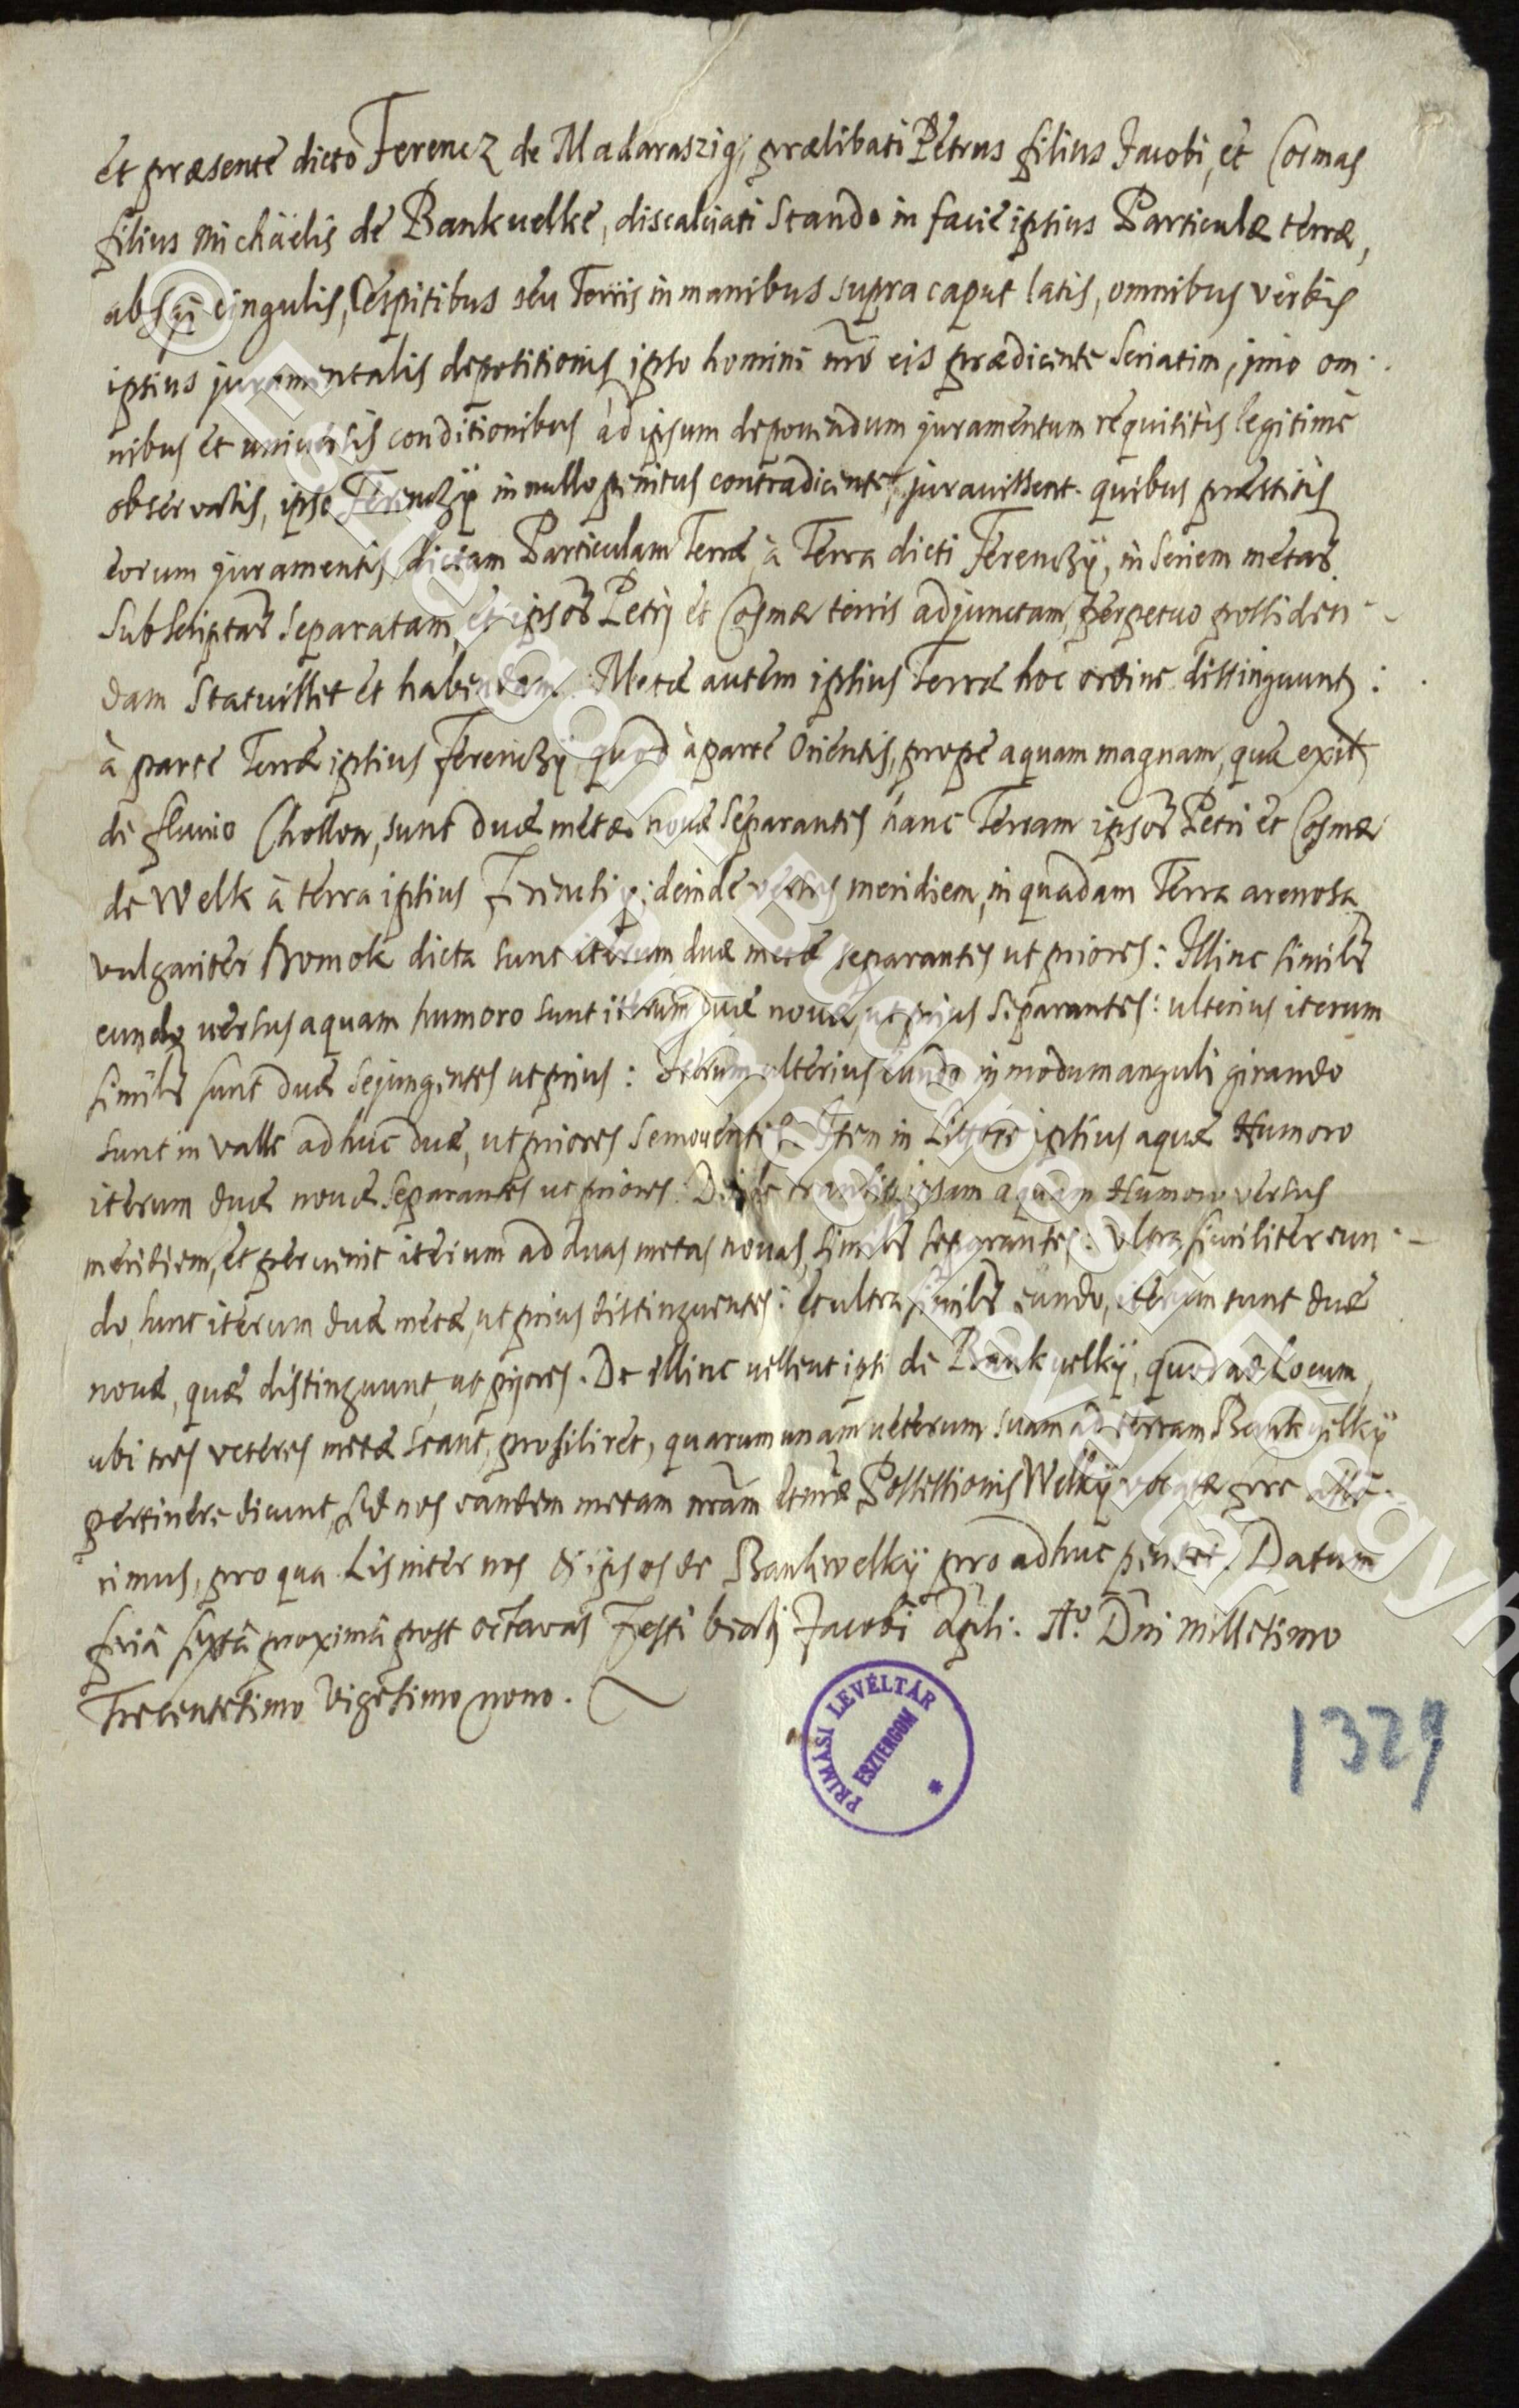 et præsente dicto Ferencz de Madaraszig, prælibati Petrus filius Jacobi, et Cosmas
filius Michäelis de Bankuelke, discalciati stando in facie ipsius Particulæ terræ,
absq̃ cingulis, Cespitibus seu Terris in manibus supra caput latis, omnibus verbis
ipsius juramentalis depositionis ipso homini nr̃o eis prædicente seriatim, imo om-
nibus et universis conditionibus ad ipsum deponendum juramentum requisitis legitime
observatis, ipso Ferenczÿ in nullo penitus contradicente, juravissent. quibus præstitis
eorum juramentis, dictam Particulam Terræ à Terra dicti Ferenczÿ, in seriem metar̃
subscriptar̃ separatam, et ipsor̃ Petri et Cosmæ terris adjunctam, perpetuo possiden-
dam statuisset et habendam. Metæ autem ipsius Terræ hoc ordine distinguunt:
à parte Terræ ipsius Ferenczÿ, quod à parte Orientis, prope aquam magnam, quæ exit
de fluvio Chollou, sunt duæ metæ novæ separantes hanc Terram ipsor̃ Petri et Cosmæ
de Welk à terra ipsius Ferenczÿ; deinde versus meridiem, in quadam Terra arenosa
vulgariter homok dicta sunt iterum duæ metæ separantes ut priores: Illinc similr̃
eundo versus aquam humoro sunt iterum duæ novæ, ut prius separantes: ulterius iterum
similr̃ sunt duæ sejungentes ut prius: Iterum ulterius eundo in modum anguli girando
sunt in valle adhuc duæ, ut priores semoventes. Item in Littore ipsius aquæ Humoro
iterum duæ novæ separantes ut priores: Deinde transit ipsam aquam Humoro versus
meridiem, et pervenit iterum ad duas metas novas, similr̃ separantes: Ultra similiter eun-
do, sunt iterum duæ metæ, ut prius distinguentes: et ultra similr̃ eundo, iterum sunt duæ
novæ, quæ distinguunt, ut priores. De illinc vellent ipsi de Bankuelkÿ, quod ad Locum,
ubi tres veteres metæ stant, prosiliret, quarum unam veterum suam ad terram Bankuelkÿ
pertinere dicunt, sed nos eandem metam nr̃am Possessionis Welkÿ vocatæ
rimus, pro qua Lis inter nos & ipsos de Bankwelkÿ pro adhuc pendet. Datum
feriâ sextâ proximâ post octavas Festi beati Jacobi Apli: Aº. Dni millesimo
Trecentesimo Vigesimo nono.
PRIMÁSI LEVÉLTÁR
ESZTERGOM
1329
© Esztergom-Budapesti Főegyhá
Prímási Levéltár